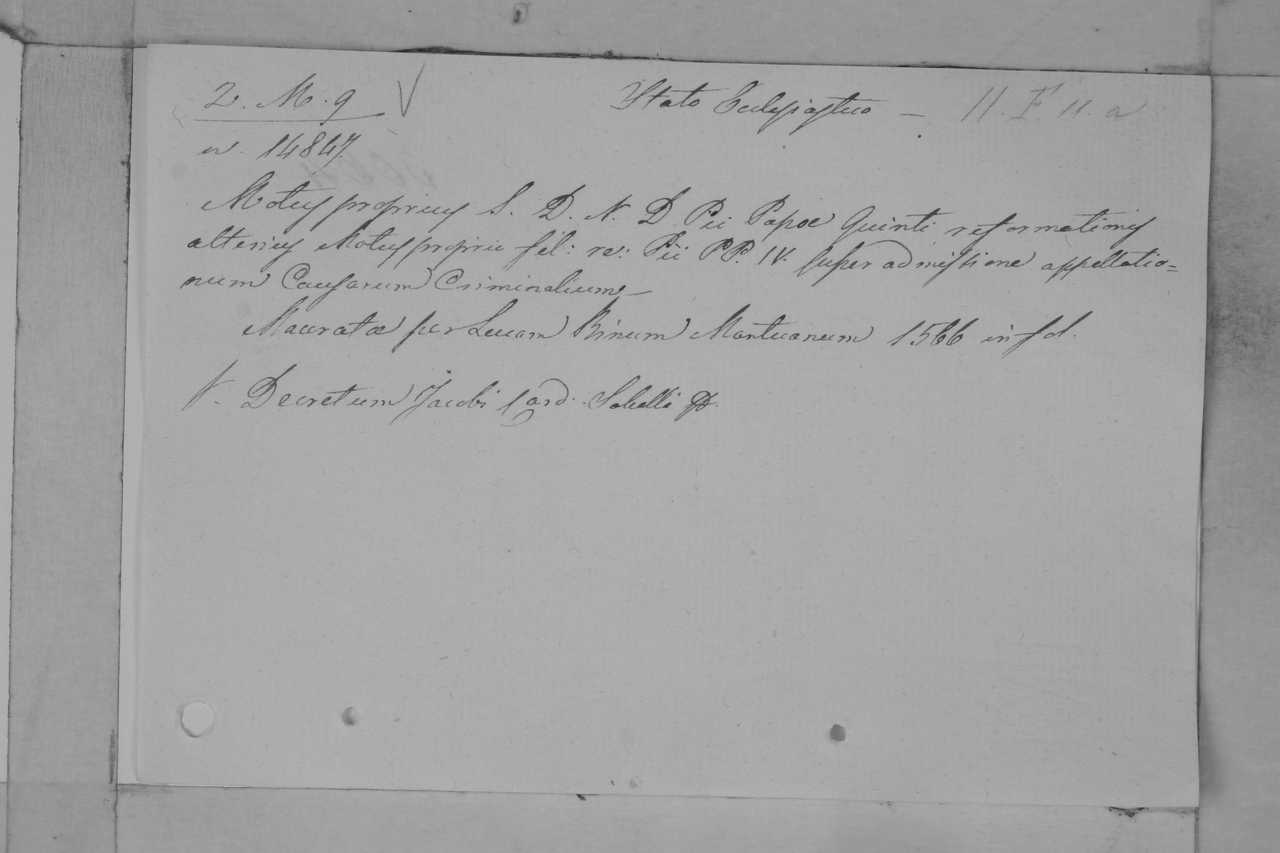 2. M. 9 V Stato Ecclesiastico — 11. F. 11. a
n. 14847.
Motus proprius S. D. N. D Pii Papæ Quinti reformationis
alterius Motus proprii fel: re: Pii PP. IV. super admissione appellatio=
num Causarum Criminalium —
Maceratæ per Lucam Binum Mantuanum 1566 in fol.
V. Decretum Jacobi Card. Sabelli